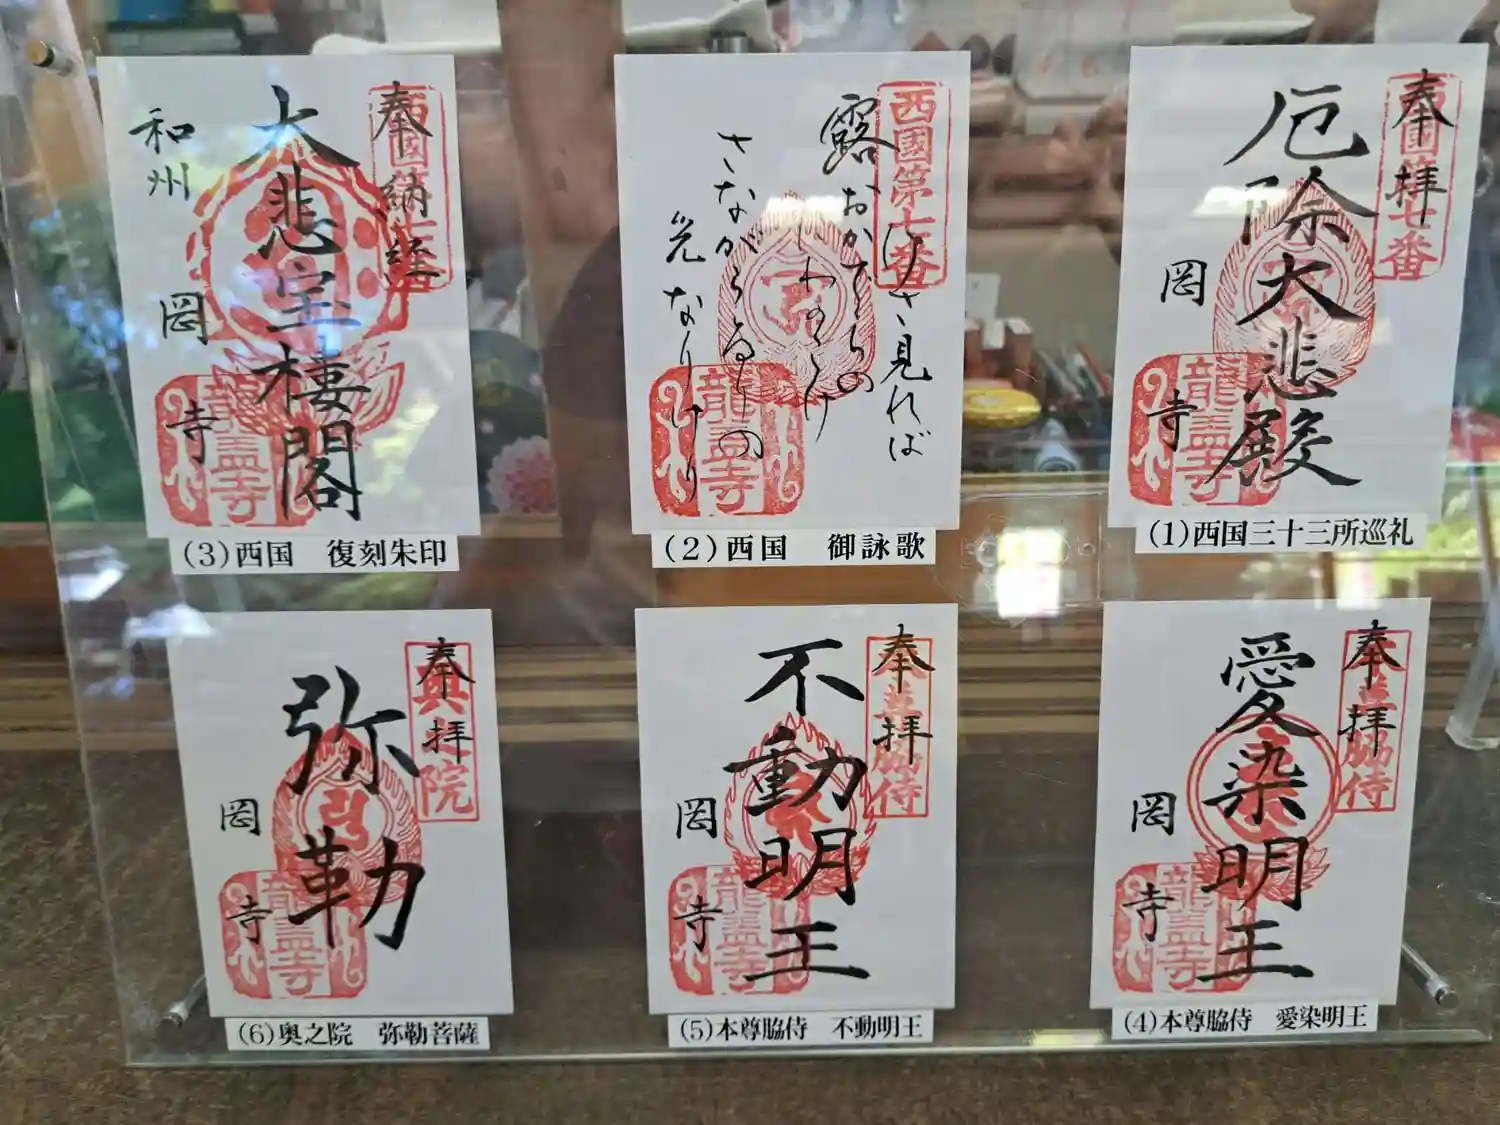 奉拝
西国第七番
厄除大悲殿
岡寺
龍蓋寺
(1)西国三十三所巡礼
西國第七番
けさ見れば
露おかでらの
さながらるりの
光なりけり
龍蓋寺
(2)西国 御詠歌
奉納経
大悲宝楼閣
和州
岡寺
龍蓋寺
(3)西国 復刻朱印
奉拝
脇侍
愛染明王
岡寺
龍蓋寺
(4)本尊脇侍 愛染明王
奉拝
脇侍
不動明王
岡寺
龍蓋寺
(5)本尊脇侍 不動明王
奉拝
院
弥勒
岡寺
龍蓋寺
(6)奥之院 弥勒菩薩